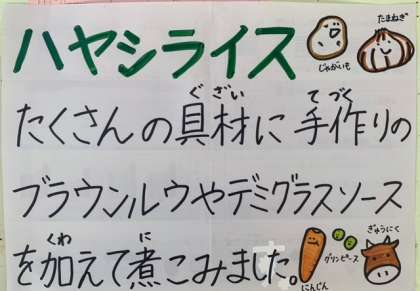 ハヤシライス
じゃがいも
たまねぎ
ぐざい
てづく
たくさんの具材に手作りの
ブラウンルウやデミグラスソース
くわ
に
を加えて煮こみました。
にんじん
グリンピース
ぎゅうにく